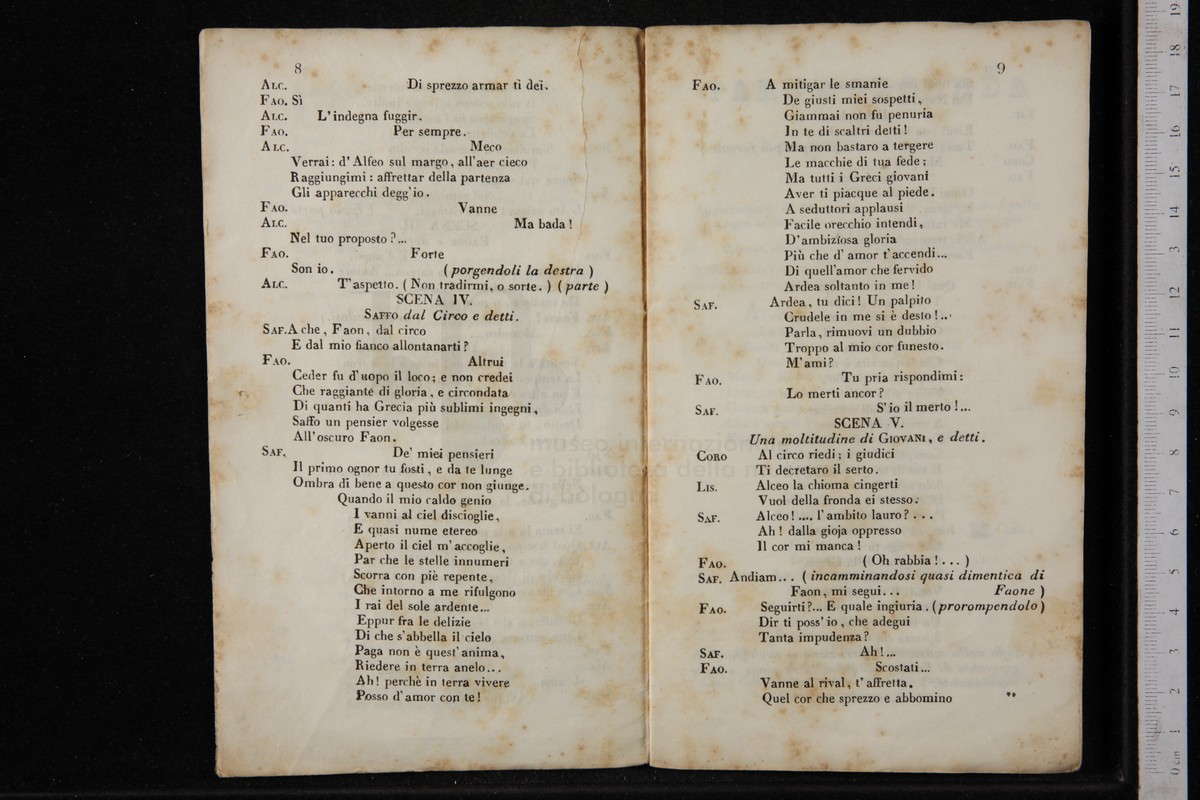 8
ALC. Di sprezzo armar ti dei.
FAO. Sì
ALC. L'indegna fuggir.
FAO. Per sempre.
ALC. Meco
Verrai: d'Alfeo sul margo, all'aer cieco
Raggiungimi: affrettar della partenza
Gli apparecchi degg'io.
FAO. Vanne
ALC. Ma bada!
Nel tuo proposto?...
FAO. Forte
Son io. (porgendoli la destra)
ALC. T'aspetto. (Non tradirmi, o sorte.) (parte)
SCENA IV.
SAFFO dal Circo e detti.
SAF. A che, Faon, dal circo
E dal mio fianco allontanarti?
FAO. Altrui
Ceder fu d'uopo il loco; e non credei
Che raggiante di gloria, e circondata
Di quanti ha Grecia più sublimi ingegni,
Saffo un pensier volgesse
All'oscuro Faon.
SAF. De' miei pensieri
Il primo ognor tu fosti, e da te lunge
Ombra di bene a questo cor non giunge.
Quando il mio caldo genio
I vanni al ciel discioglie,
E quasi nume etereo
Aperto il ciel m'accoglie,
Par che le stelle innumeri
Scorra con piè repente,
Che intorno a me rifulgono
I rai del sole ardente...
Eppur fra le delizie
Di che s'abbella il cielo
Paga non è quest'anima,
Riedere in terra anelo...
Ah! perchè in terra vivere
Posso d'amor con te!
9
FAO. A mitigar le smanie
De giusti miei sospetti,
Giammai non fu penuria
In te di scaltri detti!
Ma non bastaro a tergere
Le macchie di tua fede;
Ma tutti i Greci giovani
Aver ti piacque al piede.
A seduttori applausi
Facile orecchio intendi,
D'ambiziosa gloria
Più che d'amor t'accendi...
Di quell'amor che fervido
Ardea soltanto in me!
SAF. Ardea, tu dici! Un palpito
Crudele in me si è desto!...
Parla, rimuovi un dubbio
Troppo al mio cor funesto.
M'ami?
FAO. Tu pria rispondimi:
Lo merti ancor?
SAF. S'io il merto!...
SCENA V.
Una moltitudine di GIOVANI, e detti.
CORO Al circo riedi; i giudici
Ti decretaro il serto.
LIS. Alceo la chioma cingerti
Vuol della fronda ei stesso.
SAF. Alceo!.... l'ambito lauro?...
Ah! dalla gioja oppresso
Il cor mi manca!
FAO. (Oh rabbia!...)
SAF. Andiam... (incamminandosi quasi dimentica di
Faon, mi segui... Faone)
FAO. Seguirti?... E quale ingiuria. (prorompendolo)
Dir ti poss'io, che adegui
Tanta impudenza?
SAF. Ah!...
FAO. Scostati...
Vanne al rival, t'affretta.
Quel cor che sprezzo e abbomino **
museo internazionale
e biblioteca della musica
di bologna
0 cm 1 2 3 4 5 6 7 8 9 10 11 12 13 14 15 16 17 18 19